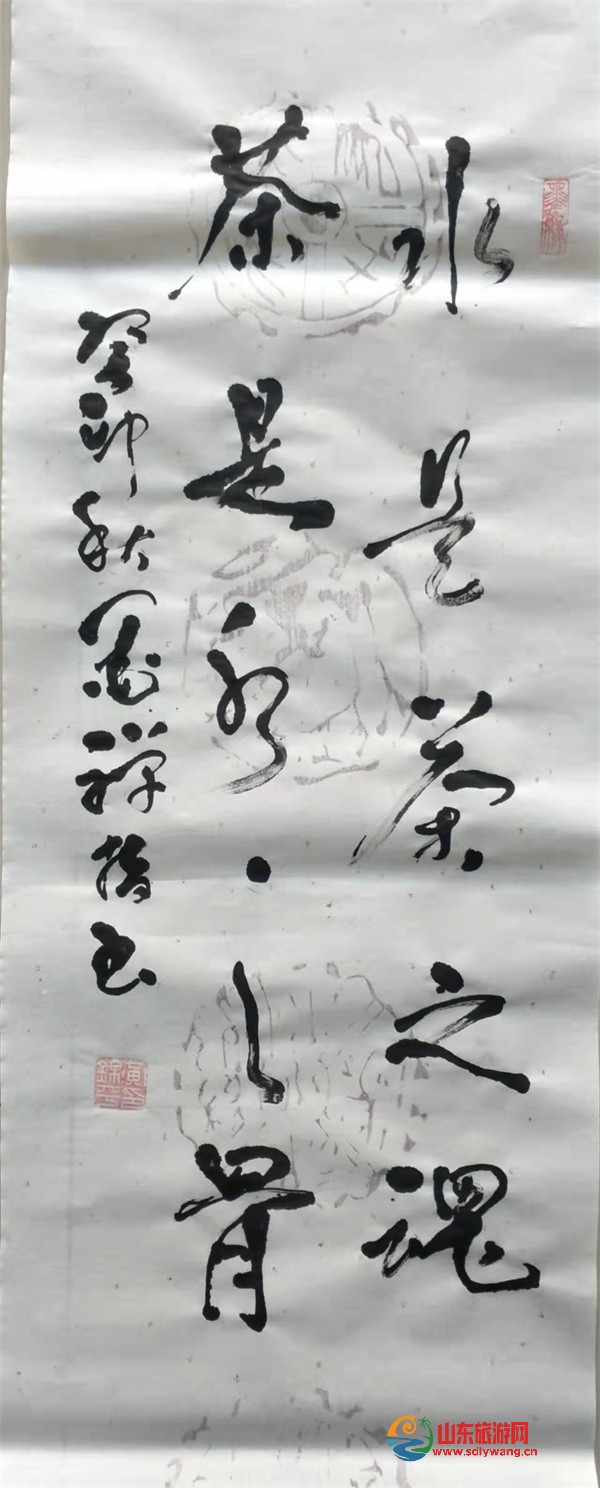 水是茶之魂
茶是水之骨
癸卯秋墨禅指书
山东旅游网
www.sdlywang.cn